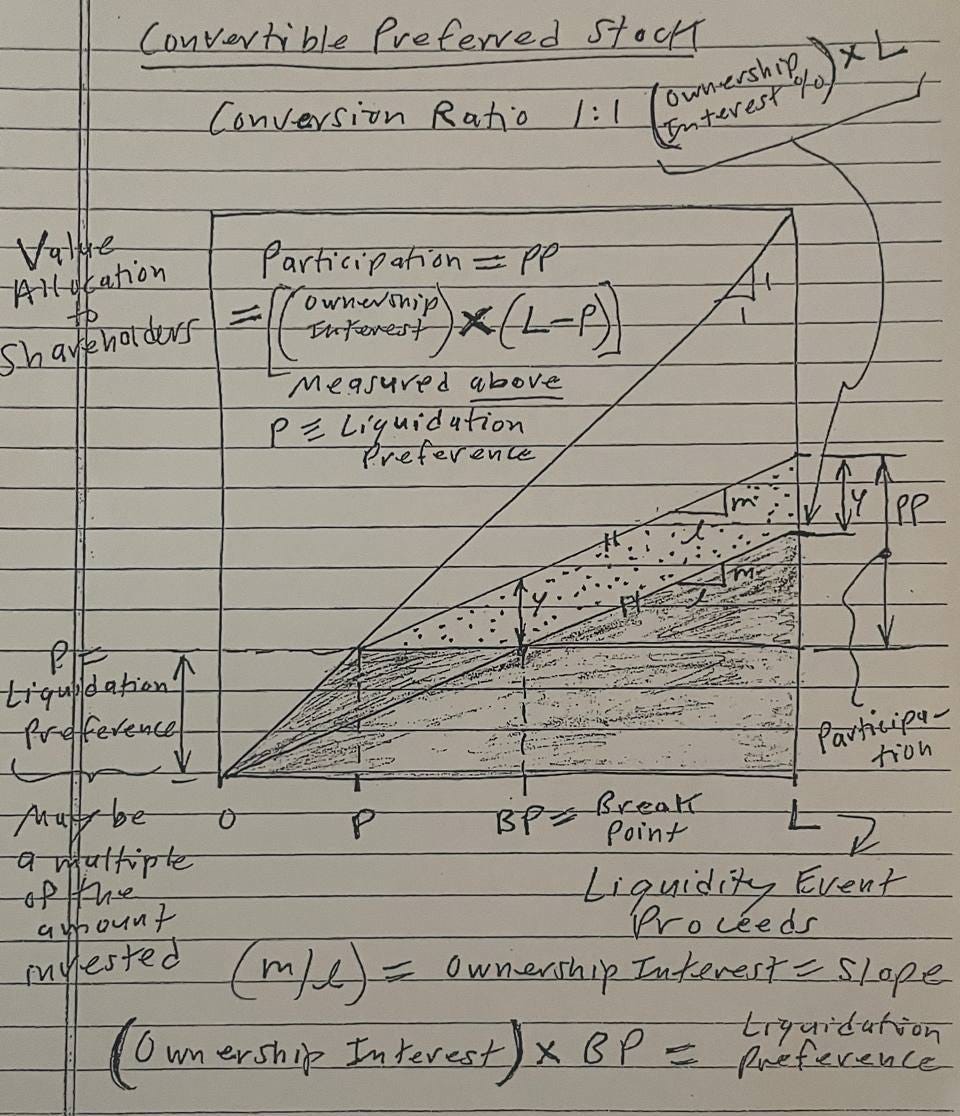 Convertible Preferred Stock
Conversion Ratio 1:1 (Ownership Interest %) × L
Value
Allocation
to
Shareholders
Participation = PP
= [(Ownership Interest) × (L-P)]
Measured above
P ≡ Liquidation
Preference
1
1
m
l
m
l
Y
Y
PP
P =
Liquidation
Preference
Participa-
tion
O
P
BP = Break
Point
L
May be
a multiple
of the
amount
invested
Liquidity Event
Proceeds
(m/l) = Ownership Interest = Slope
(Ownership Interest) × BP = Liquidation Preference